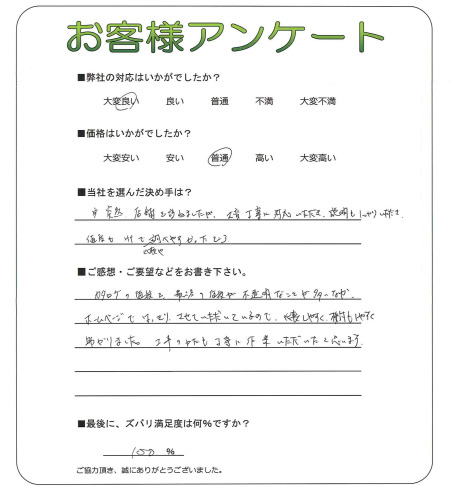 お客様アンケート
■弊社の対応はいかがでしたか？
大変良い 良い 普通 不満 大変不満
■価格はいかがでしたか？
大変安い 安い 普通 高い 大変高い
■当社を選んだ決め手は？
店舗を 丁寧に対応いただき、説明もしっかりいただき、
価格も
■ご感想・ご要望などをお書き下さい。
カタログの価格と、 の価格が不透明なことが多いなか、
ホームページではっきりさせていただいているので、 しやすく、検討もしやすく
助かりました。工事の方も丁寧に作業いただいたと思います。
■最後に、ズバリ満足度は何％ですか？
100 ％
ご協力頂き、誠にありがとうございました。